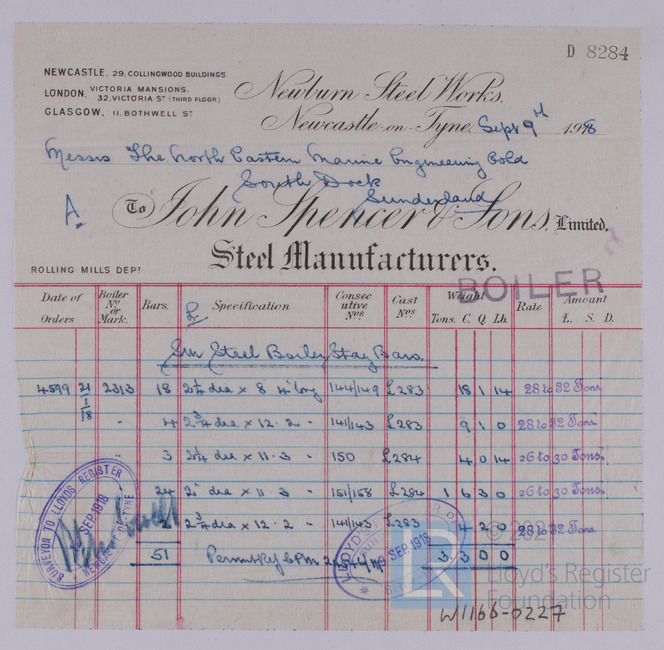 D 8284
NEWCASTLE, 29, COLLINGWOOD BUILDINGS
LONDON, VICTORIA MANSIONS, 32, VICTORIA ST (THIRD FLOOR)
GLASGOW, 11, BOTHWELL ST
Newburn Steel Works,
Newcastle-on-Tyne, Sept 9th 1918
Messrs The North Eastern Marine Engineering Co Ld
South Dock
Sunderland
A.
To John Spencer & Sons, Limited,
Steel Manufacturers.
ROLLING MILLS DEPT
BOILER
Date of Orders Boiler No or Mark. Bars. Specification Consecutive Nos Cast Nos Weight Tons. C. Q. Lb. Rate Amount £. S. D.
Sm Steel Boiler Stay Bars.
4599 21/1/18 2313 18 dia x 8 4 long 144/149 L283 18 1 14 28 to 32 Tons.
" 4 2 3/4 dia x 12 . 2 " 141/143 L283 9 1 0 28 to 32 Tons.
3 dia x 11 . 3 " 150 L284 4 0 14 26 to 30 Tons.
24 2" dia x 11 . 3 " 151/158 L284 1 6 3 0 26 to 30 Tons.
2 2 3/4 dia x 12 . 2 " 141/143 L283 4 2 0 28 to 32 Tons.
51 Permit 3 3 0 0
SURVEYOR TO LLOYDS REGISTER
SEP 1918
NEWCASTLE-ON-TYNE
LLOYD
9 SEP. 1918
©
LR
Lloyd's Register
Foundation
W1166-0227